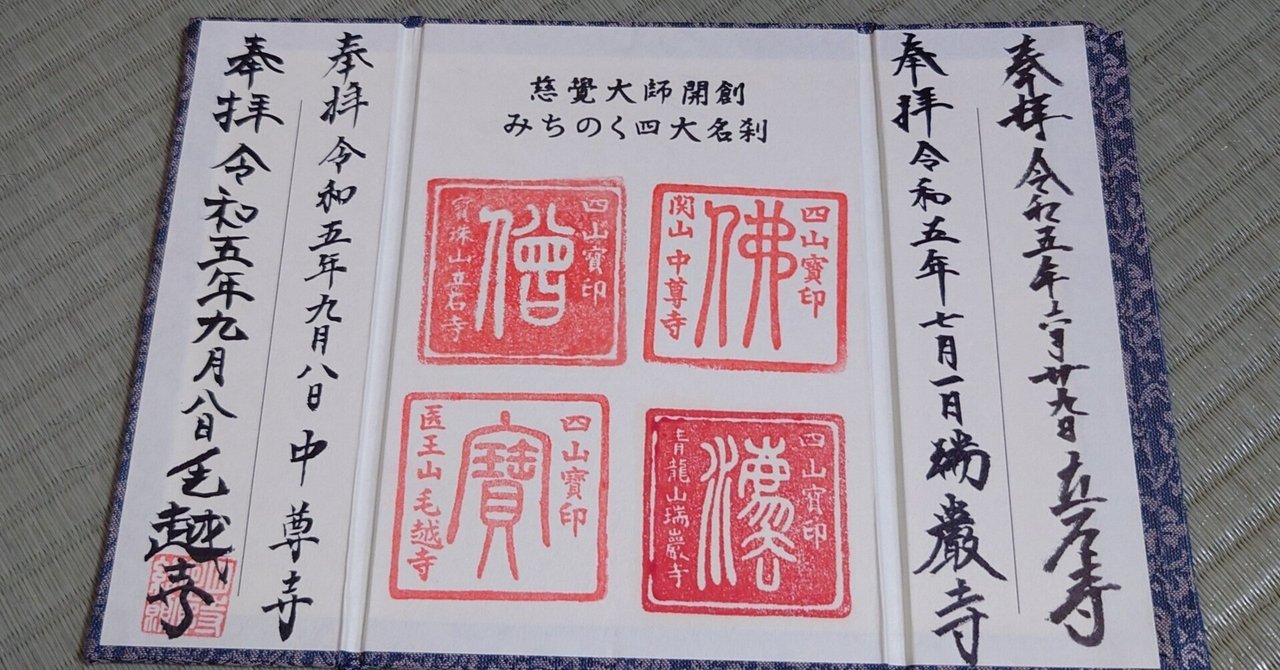 慈覺大師開創
みちのく四大名刹
奉拝 令和五年六月廿九日 立石寺
奉拝 令和五年七月一日 瑞巖寺
四山寳印
佛
関山 中尊寺
四山寳印
僧
寳珠山立石寺
四山寳印
法
青龍山瑞巖寺
四山寳印
寶
医王山 毛越寺
奉拝 令和五年九月八日 中尊寺
奉拝 令和五年九月八日 毛越寺